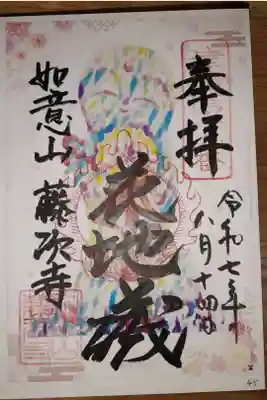 奉拝
令和七年
八月十四日
花地蔵
如意山 藤次寺
45